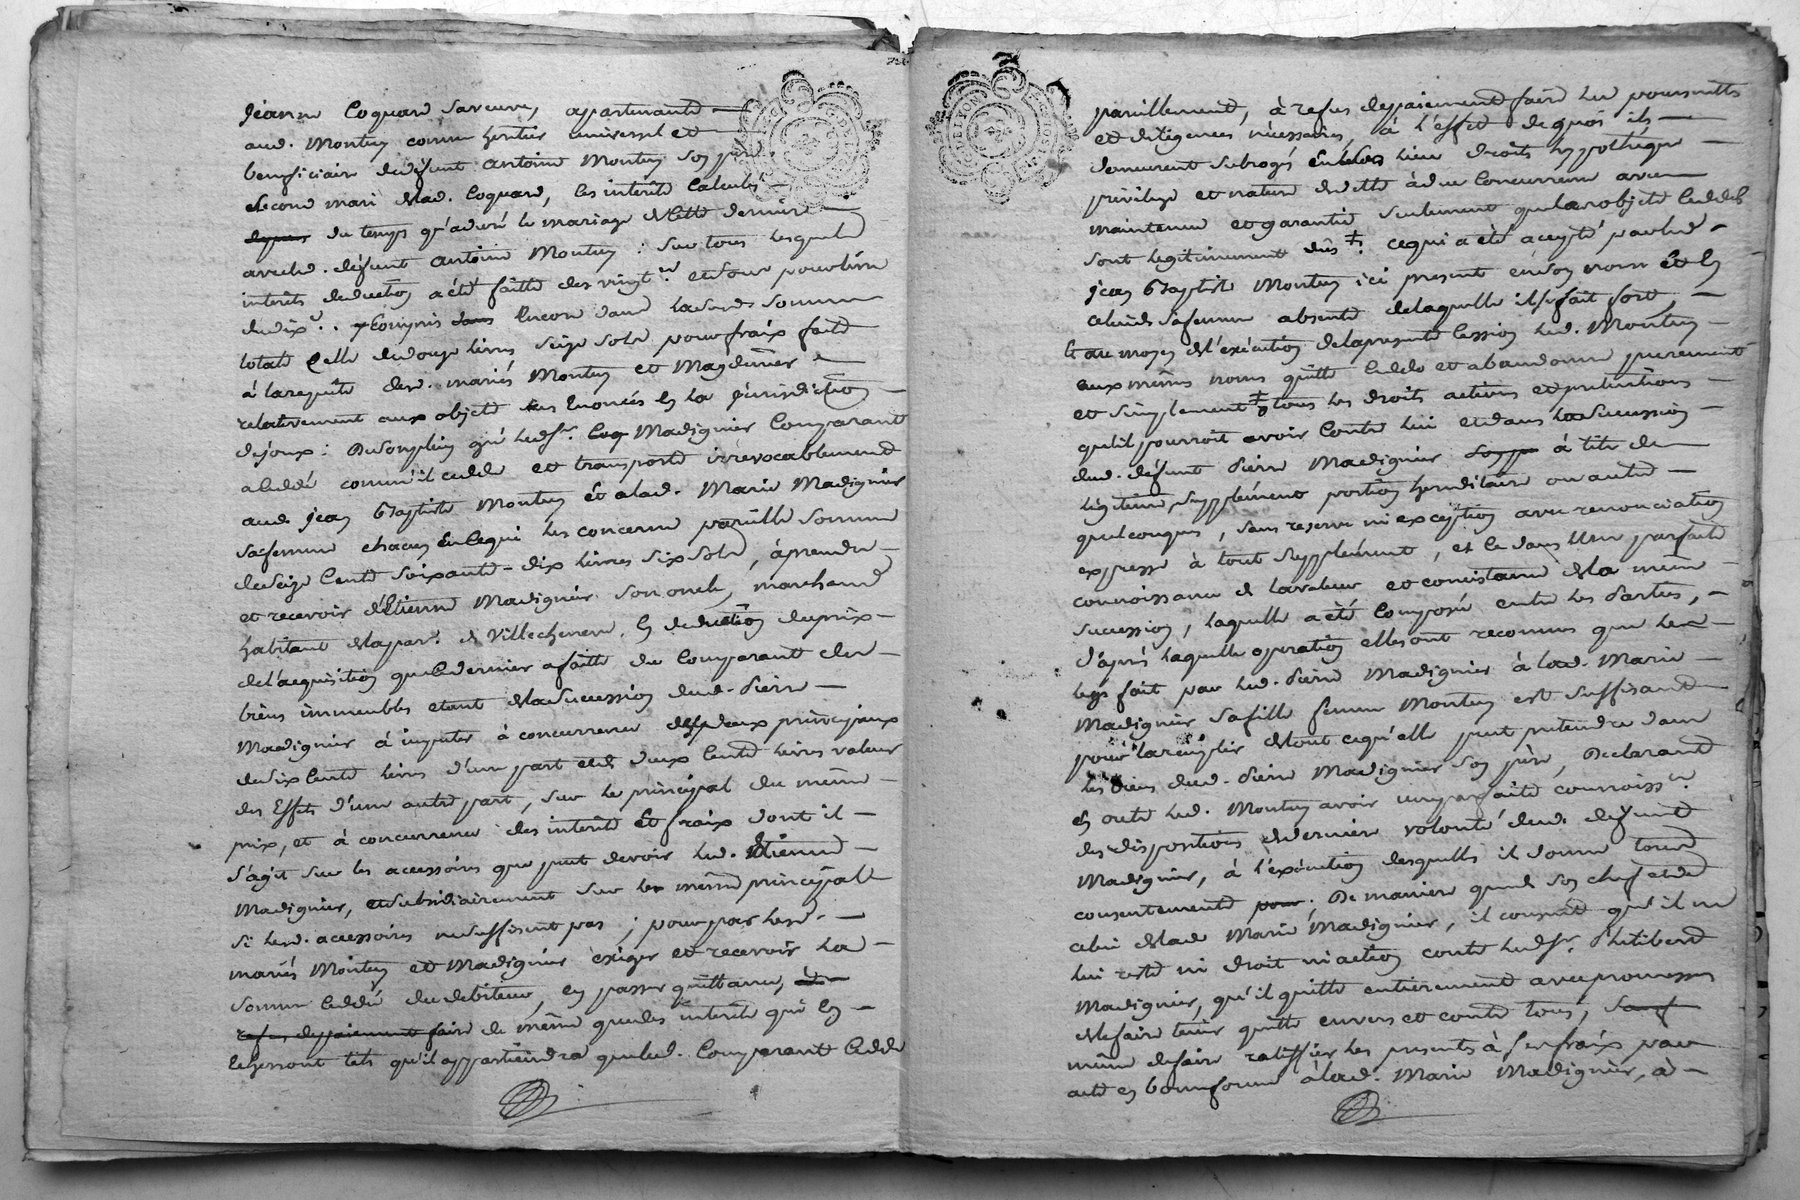 Jeanne Coquard sa veuve, appartenante
aud. Montuy comme heritier universel et
beneficiaire dud. défunt Antoine Montuy son père
second mari de lad. Coquard, les interêts calculés
depuis du temps qu'a duré le mariage de cette derniere
avec led. défunt Antoine Montuy : sur tous lesquels
interêts deduction a été faitte des vingt.es et sous pour livre
du dix.e. y compris dans encore dans la susd. somme
totale celle de douze livres seize sols pour fraix faits
à la requête desd. mariés Montuy et Magdinier
relativement aux objets sus enoncés en la jurisdiction
de joux : Duson plein gré led. sr. Coq Madignier Comparant
a cedé comm'il cede et transporte irrevocablement
aud. Jean Baptiste Montuy et a lad. Marie Madignier
sa femme chacun en ce qui les concerne pareille somme
de seize cents soixante-dix livres six sols, à prendre
et recevoir d'Etienne Madignier son oncle, marchand
habitant de la par. de Villechenene, en deduction du prix
de l'acquisition que ce dernier a faitte du Comparant des
biens immeubles etant de la succession dud. Pierre
Madignier à imputer à concurrence des deux principaux
de six cents livres d'une part et de deux cents livres valeur
des Effets d'une autre part, sur le principal du même
prix, et à concurrence des interêts et fraix dont il
s'agit sur les accessoires que peut devoir led. Etienne
Madignier, et subsidiairement sur le même principal
si lesd. accessoires ne suffisent pas ; pour par lesd.
mariés Montuy et Madignier exiger et recevoir la
somme cedée du debiteur, en passer quittance, à
refus de paiement faire de même que les interêts qui en
echerront tels qu'il appartiendra que led. Comparant cede
pareillement, à refus de paiement faire les poursuittes
et diligences necessaires, à l'effet de quoi ils
demeurent subrogés en ses lieu droits hypothèque
privilege et nature de dette à due concurrence avec
maintenue et garantie seulement que les objets cedés
sont legitimement dûs ‡. ce qui a été accepté par led.
Jean Baptiste Montuy ici present en son nom et en
celui de sa femme absente de laquelle il se fait fort,
et au moyen de l'exécution de la presente cession led. Montuy
aux mêmes noms quitte cede et abandonne purement
et simplement ‡ tous les droits actions et pretentions
qu'il pourroit avoir contre lui et dans la succession
dud. défunt Pierre Madignier à titre de
légitime, supplément portion hereditaire ou autre
quelconque, sans reserve ni exception avec renonciation
expresse à tout supplément, et ce dans une parfaite
connoissance de la valeur et consistance de la même
succession, laquelle a été composée entre les parties,
d'après laquelle operation elles ont reconnu que le
legs fait par led. Pierre Madignier à lad. Marie
Madignier sa fille femme Montuy est suffisant
pour la remplir de tout ce qu'elle peut pretendre dans
les biens dud. Pierre Madignier son père, Declarant
en outre led. Montuy avoir une parfaite connoiss.ce
des dispositions de derniere volonté dud. défunt
Madignier, à l'exécution desquelles il donne tout
consentement pour. De maniere que de son chef et de
celui de lad. Marie Madignier, il consent qu'il ne
lui reste ni droit ni action contre led. sr. Philibert
Madignier, qu'il quitte entierement avec promesse
de le faire tenir quitte envers et contre tous, sauf
même de faire ratiffier les presentes à ses fraix par
acte en bonne forme à lad. Marie Madignier, à